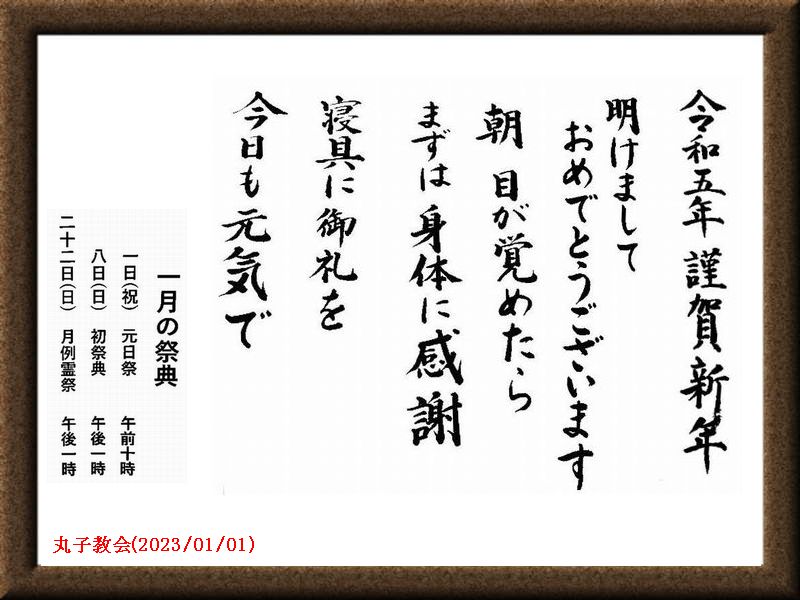 令和五年 謹賀新年
明けまして
おめでとうございます
朝 目が覚めたら
まずは 身体に感謝
寝具に 御礼を
今日も 元気で
一月の祭典
一日(祝) 元日祭 午前十時
八日(日) 初祭典 午後一時
二十二日(日) 月例霊祭 午後一時
丸子教会(2023/01/01)